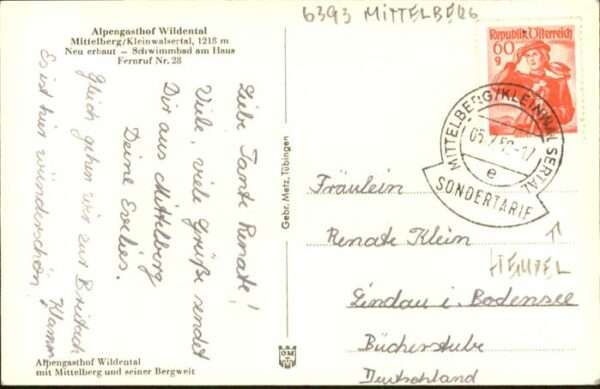 6393 MITTELBERG
Alpengasthof Wildental
Mittelberg/Kleinwalsertal, 1218 m
Neu erbaut - Schwimmbad am Haus
Fernruf Nr. 28
Republik Österreich
60
g
MITTELBERG/KLEINWALSERTAL
e
SONDERTARIF
Liebe Tante Renate!
Viele, viele Grüße sendet
Dir aus Mittelberg
Deine Evelies.
Gleich gehen wir zur Breitach
Es ist hier wunderschön.
Gebr. Metz, Tübingen
Fräulein
Renate Klein
Lindau i. Bodensee
Bücherstube
Deutschland
Alpengasthof Wildental
mit Mittelberg und seiner Bergwelt